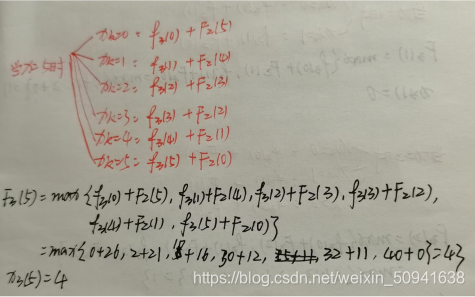 当x=5时
xk=0: f3(0) + F2(5)
xk=1: f3(1) + F2(4)
xk=2: f3(2) + F2(3)
xk=3: f3(3) + F2(2)
xk=4: f3(4) + F2(1)
xk=5: f3(5) + F2(0)
F3(5)=max{f3(0)+F2(5), f3(1)+F2(4), f3(2)+F2(3), f3(3)+F2(2),
f3(4)+F2(1), f3(5)+F2(0)}
=max{0+26, 2+21, +16, 30+12, 32+11, 40+0}=43
x3(5)=4
https://blog.csdn.net/weixin_50941638